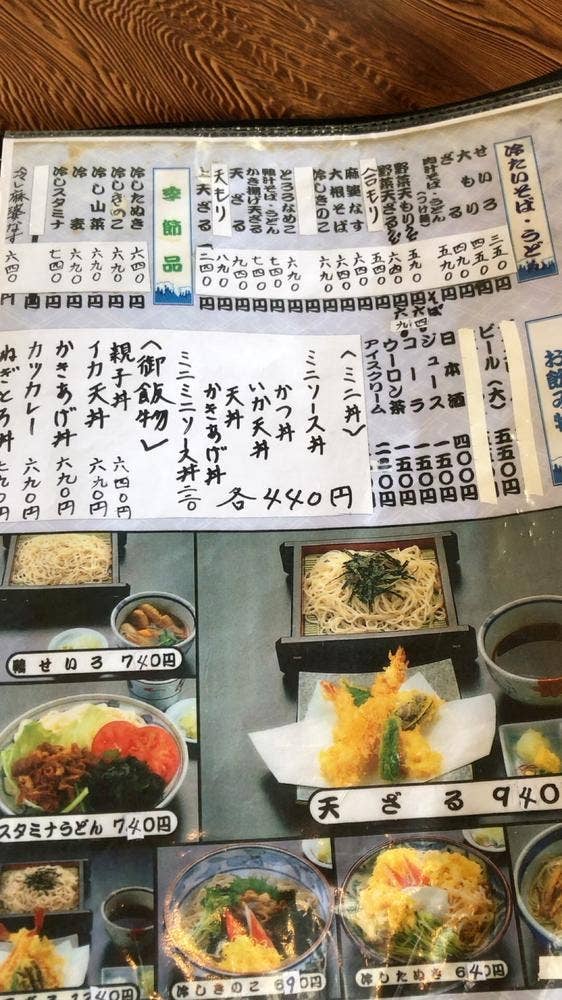 冷たいそば・うどん
せいろ 三五〇円
ざる 四五〇円
大もり 四九〇円
肉汁そば・うどん
合もり 五四〇円
麻婆なす 六四〇円
大根そば 六四〇円
冷しきのこ 六九〇円
とろろなめこ 六九〇円
鴨汁そば・うどん 七四〇円
かき揚げ天ざる 七四〇円
天ざる 九四〇円
天もり 八九〇円
上天ざる 一二四〇円
季節品
冷したぬき 六四〇円
冷しきのこ 六九〇円
冷し山菜 六九〇円
冷しスタミナ 七四〇円
冷し麻婆なす 六四〇円
お飲み物
ビール(大) 五五〇円
日本酒 四〇〇円
ジュース 一五〇円
コーラ 一五〇円
ウーロン茶 一五〇円
アイスクリーム 二二〇円
〈ミニ丼〉
ミニソース丼
かつ丼
いか天丼
天丼
かきあげ丼
各440円
ミニミニソース丼
〈御飯物〉
親子丼 六四〇円
イカ天丼 六九〇円
かきあげ丼 六九〇円
カツカレー 六九〇円
ねぎとろ丼 七九〇円
鴨せいろ 740円
天ざる 940
スタミナうどん 740円
冷しきのこ 690円
冷したぬき 640円